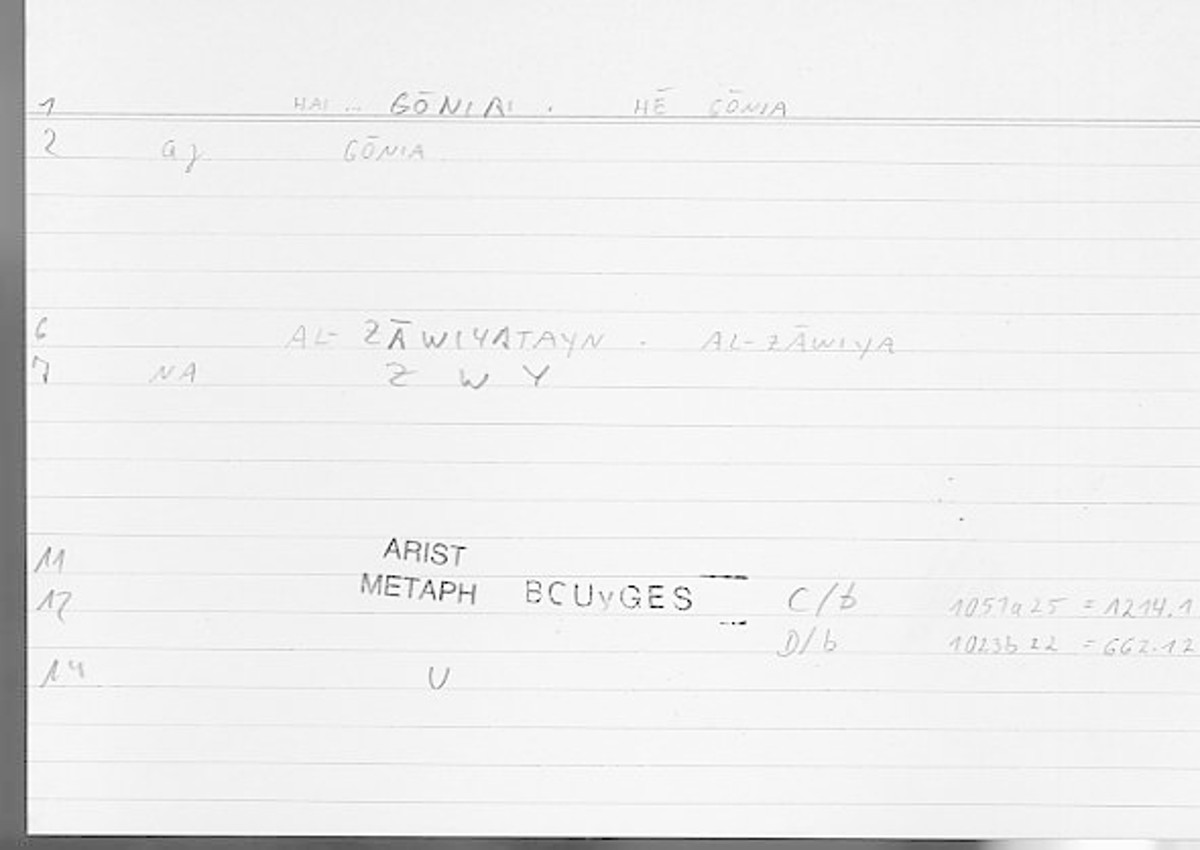 1 HAI ... GŌNIAI . HĒ GŌNIA
2 GŌNIA
6 AL- ZĀWIYATAYN . AL-ZĀWIYA
7 NA Z W Y
11 ARIST
12 METAPH BCUyGES C/b 1051a25 = 1214.1
D/b 1023b22 = 662.12
14 U